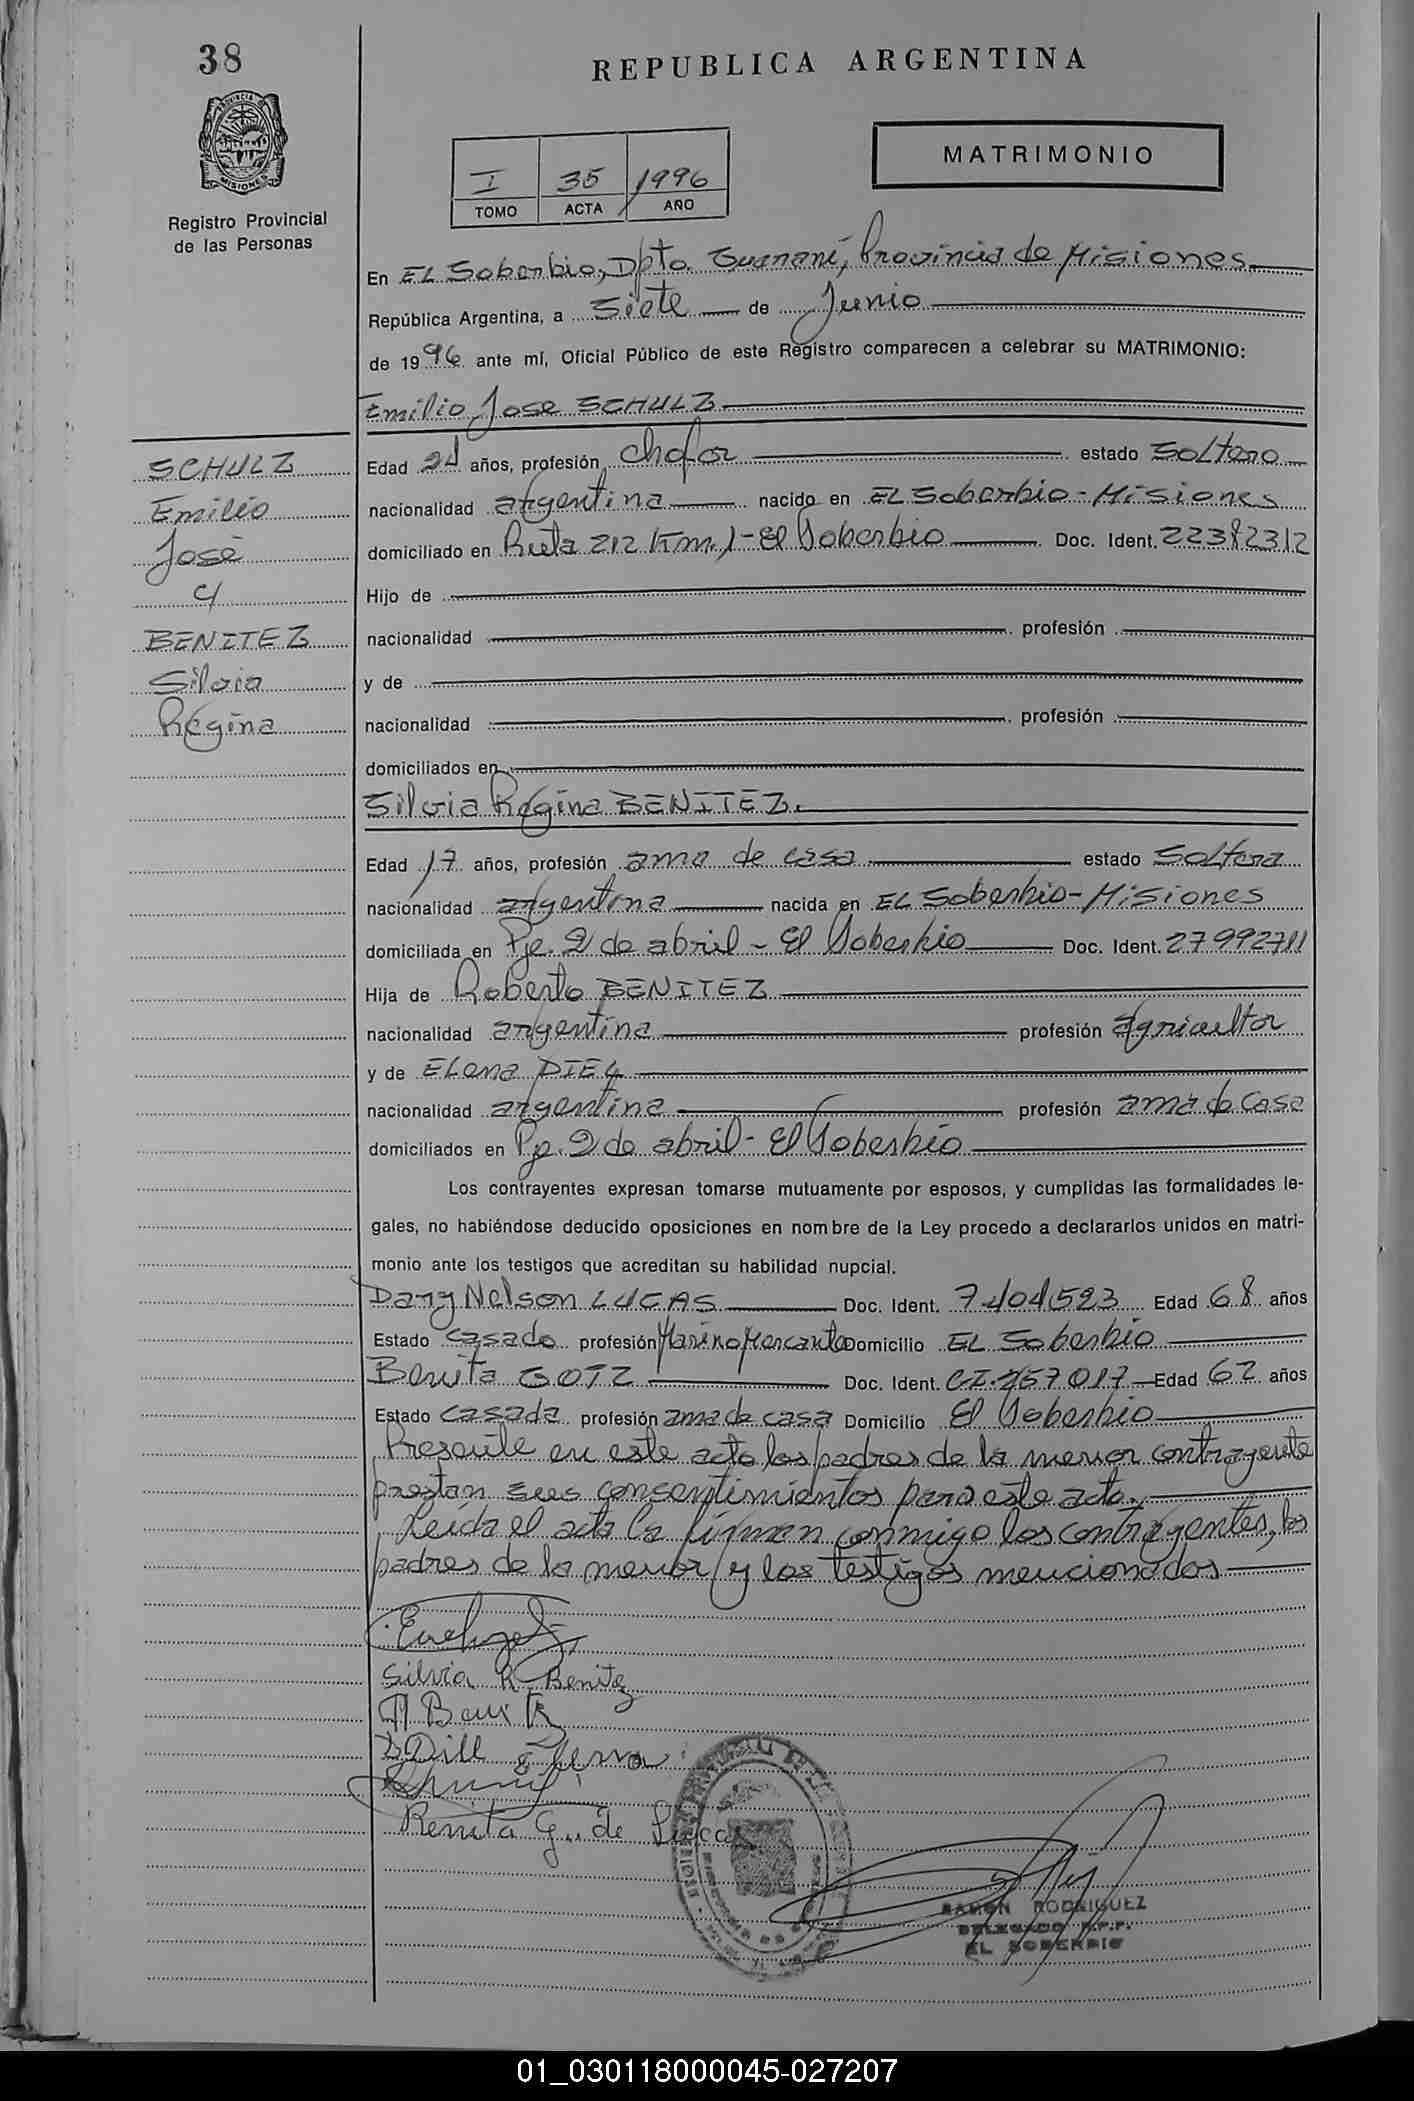 38
REPUBLICA ARGENTINA
PROVINCIA DE
MISIONES
Registro Provincial
de las Personas
MATRIMONIO
I 35 1996
TOMO ACTA AÑO
En EL Soberbio, Dpto. Guaraní, Provincia de Misiones
República Argentina, a Siete de Junio
de 1996 ante mí, Oficial Público de este Registro comparecen a celebrar su MATRIMONIO:
Emilio Jose SCHULZ
SCHULZ
Emilio
José
c/
BENITEZ
Silvia
Regina
Edad 24 años, profesión chofer estado Soltero
nacionalidad argentina nacido en EL Soberbio - Misiones
domiciliado en Ruta 212 Km.1 - El Soberbio Doc. Ident. 22382312
Hijo de
nacionalidad profesión
y de
nacionalidad profesión
domiciliados en
Silvia Regina BENITEZ.
Edad 17 años, profesión ama de casa estado Soltera
nacionalidad argentina nacida en EL Soberbio - Misiones
domiciliada en Pje. 2 de abril - El Soberbio Doc. Ident. 27992711
Hija de Roberto BENITEZ
nacionalidad argentina profesión agricultor
y de ELena
nacionalidad argentina profesión ama de casa
domiciliados en Pje. 2 de abril - El Soberbio
Los contrayentes expresan tomarse mutuamente por esposos, y cumplidas las formalidades le-
gales, no habiéndose deducido oposiciones en nombre de la Ley procedo a declararlos unidos en matri-
monio ante los testigos que acreditan su habilidad nupcial.
Dary Nelson LUCAS Doc. Ident. 7.404.523 Edad 68 años
Estado casado profesión Marino Mercante Domicilio EL Soberbio
Benita GOTZ Doc. Ident. C.I. 257.017 Edad 62 años
Estado casada profesión ama de casa Domicilio El Soberbio
Presente en este acto los padres de la menor contrayente
prestan sus consentimientos para este acto.
Leída el acta la firman conmigo los contrayentes, los
padres de la menor y los testigos mencionados
Silvia R. Benitez
Benita G. de Lucas
RAMON RODRIGUEZ
DELEGADO R.P.P.
EL SOBERBIO
01_030118000045-027207